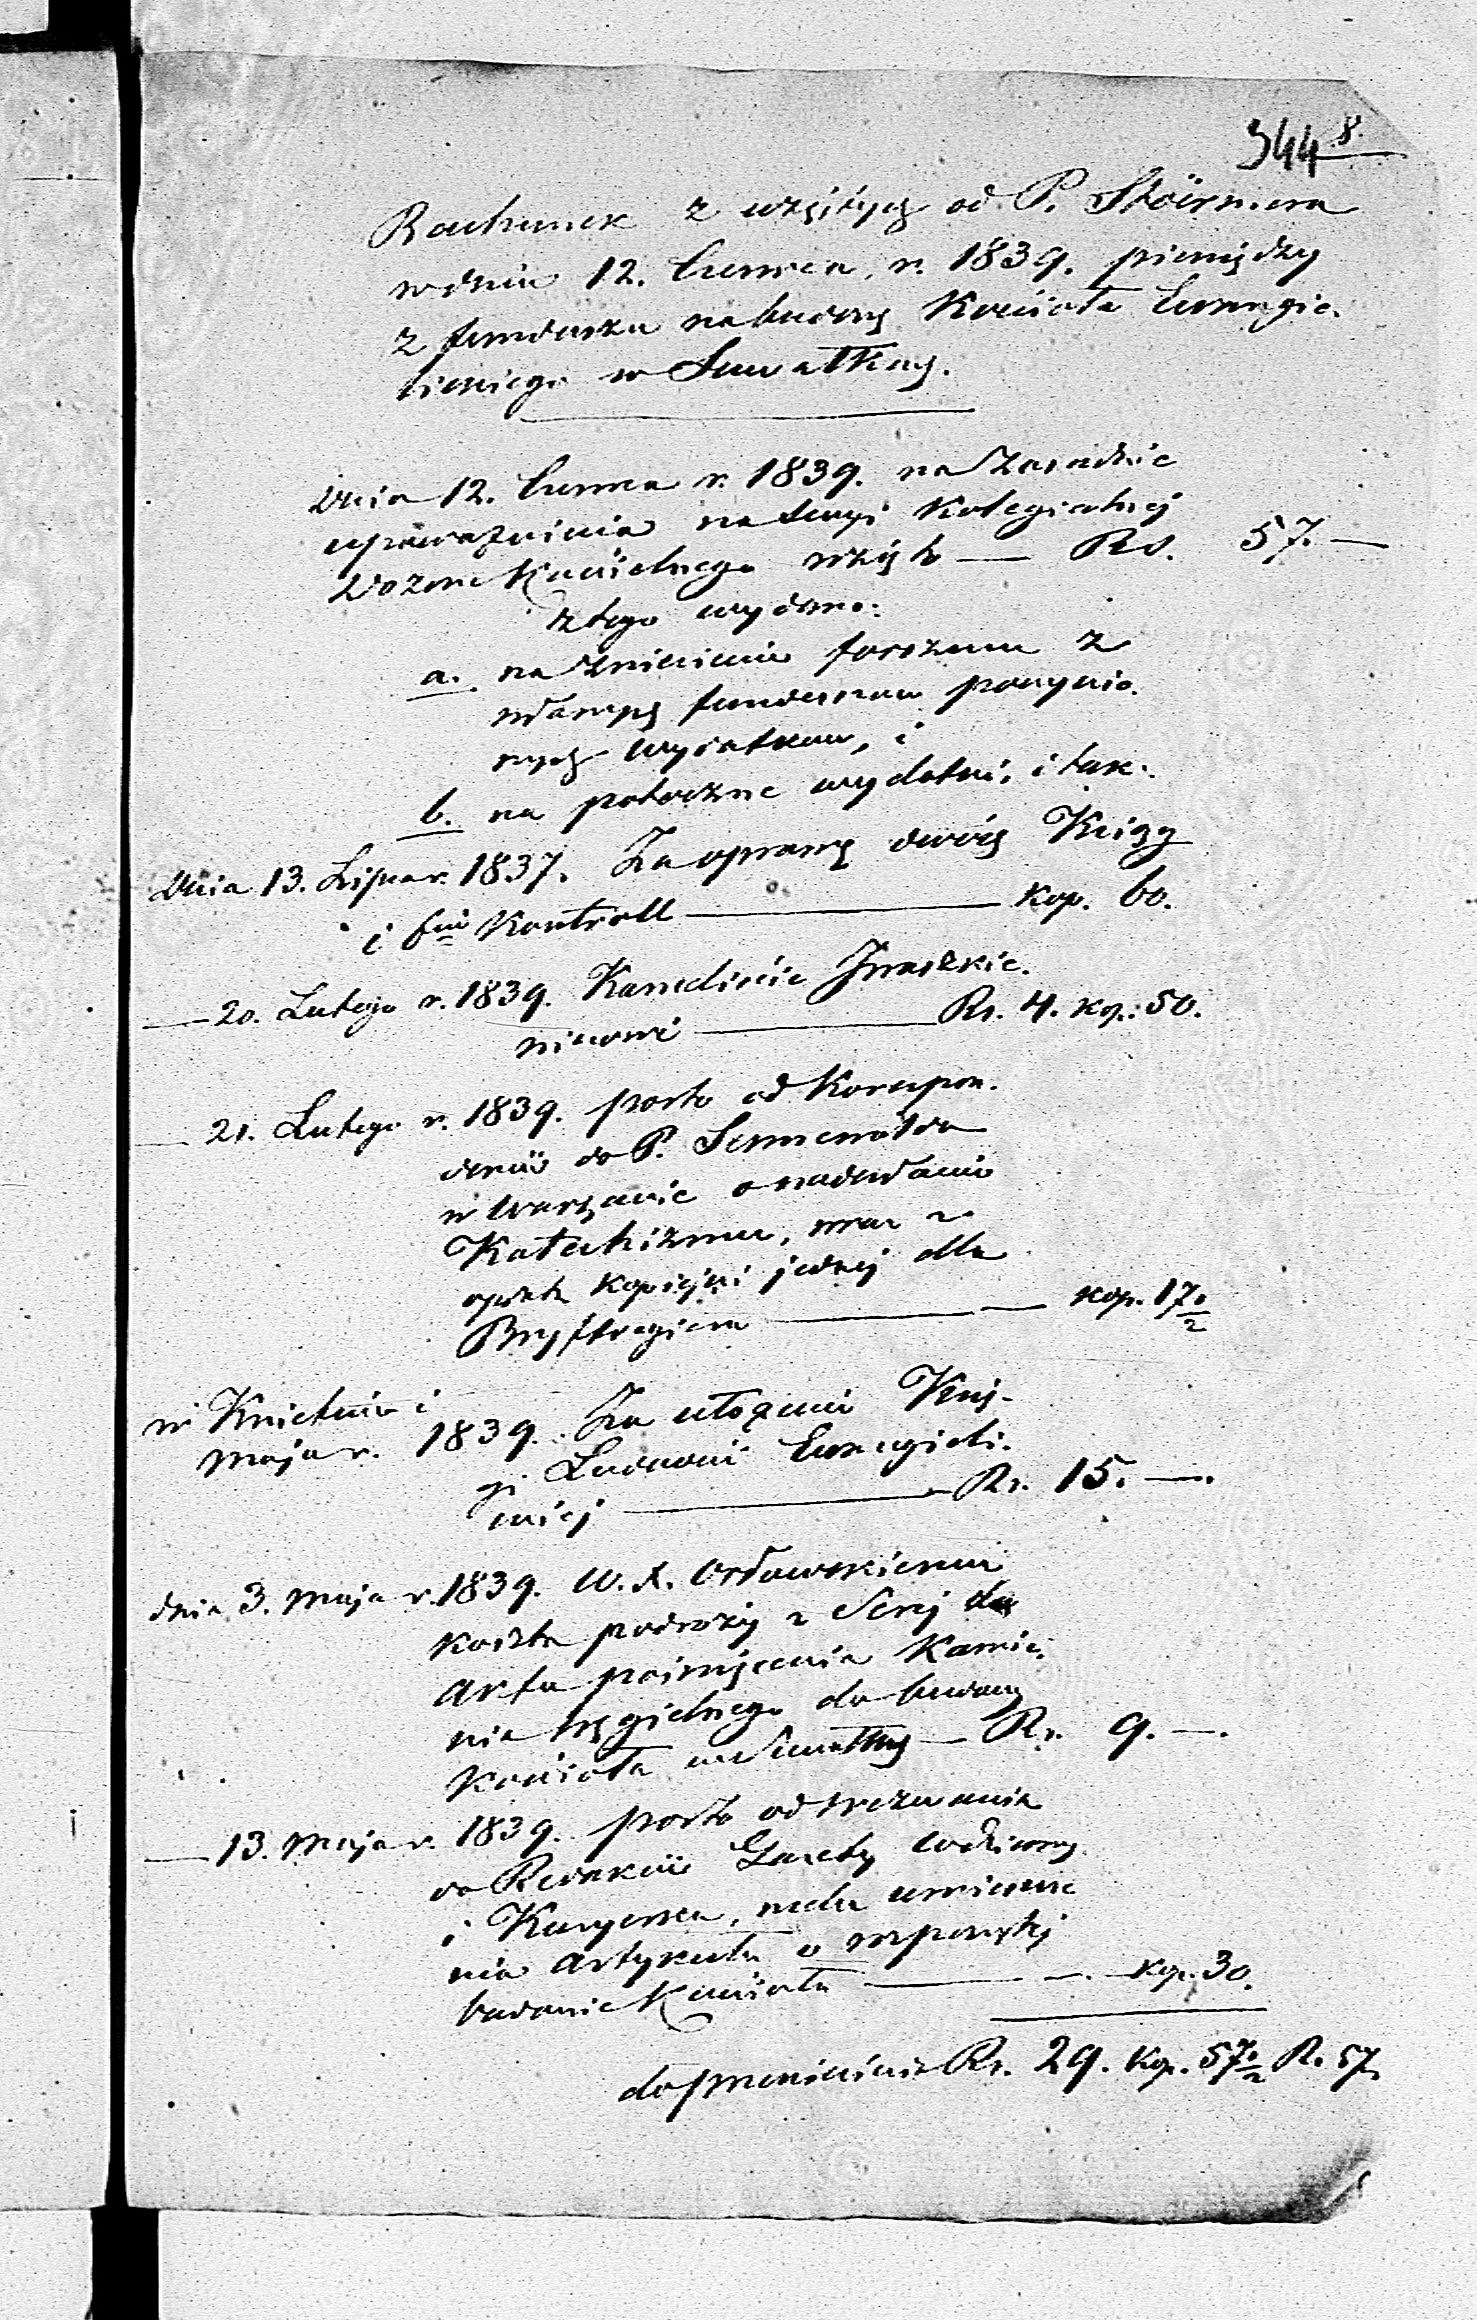 344 8.
Rachunek z wziętych od P. Stöermera
w dniu 12. Czerwca r. 1839. pieniędzy
z funduszu na budowę Kościoła Ewangie-
lickiego w Suwałkach.
Dnia 12. Czerwca r. 1839. na zasadzie
upoważnienia na Sessyi Kolegialnej
Dozoru Kościelnego wzięto — Rs. 57. —
z tego wydano:
a. na zniesienie forszusu z
własnych funduszów poczynio-
nych wydatków, i
b. na potoczne wydatki, i tak:
Dnia 13. Lipca r. 1837. Za oprawę dwóch Ksiąg
i 6ciu Kontroll — kop. 60.
— 20. Lutego r. 1839. Kancliście Iwaszkie-
wiczowi — Rs. 4. kop. 50.
— 21. Lutego r. 1839. porto od Korespon-
dencii do P.
w Warszawie o nadesłanie
Katechizmu, wraz z
opłatą kopiejki jednej dla
Bryftregiera — kop. 17 1/2
w Kwietniu i
Maja r. 1839. Za ułożenie Księ-
gi Ludności Ewangieli-
ckiej — Rs. 15. —
dnia 3. Maja r. 1839. W. X. Orłowskiemu
koszta podroży z Serej do
Aktu poświęcenia Kamie-
nia węgielnego do budowy
Kościoła w Suwałkach — Rs. 9. —
— 13. Maja r. 1839. porto od wezwania
do Redakcii Gazety Codziennej
i Kuryera, wedle umieszcze-
nia artykułu o rozpoczętej
budowie Kościoła — kop. 30.
do przeniesienia Rs. 29. Kop. 57 1/2 R. 57.